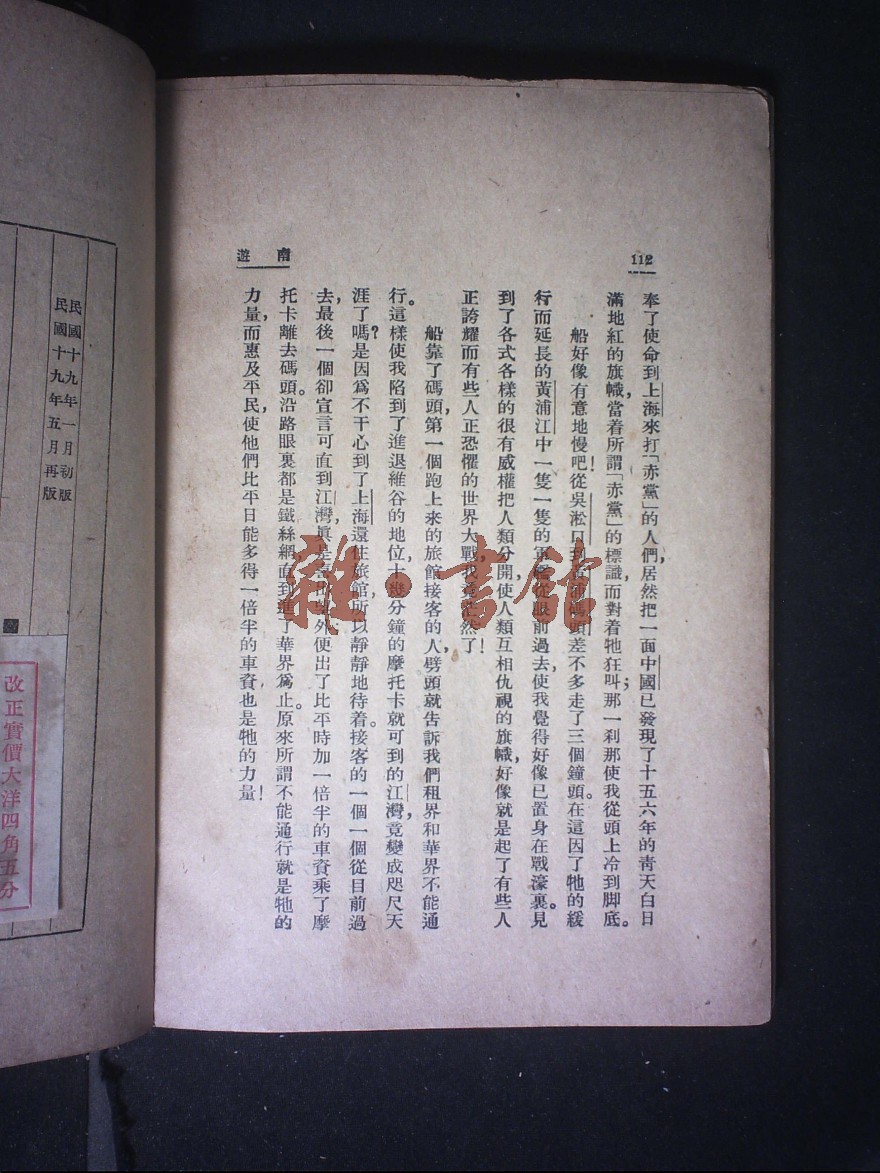 112
南遊
奉了使命到上海來打「赤黨」的人們，居然把一面中國已發現了十五六年的靑天白日
滿地紅的旗幟，當着所謂「赤黨」的標識，而對着牠狂叫；那一刹那使我從頭上冷到脚底。
船好像有意地慢吧！從吳淞口到黃浦碼頭差不多走了三個鐘頭。在這因了牠的緩
行而延長的黃浦江中一隻一隻的軍艦從眼前過去，使我覺得好像已置身在戰濠裏。見
到了各式各樣的很有威權把人類分開，使人類互相仇視的旗幟，好像就是起了有些人
正誇耀而有些人正恐懼的世界大戰，我竟茫然了！
船靠了碼頭，第一個跑上來的旅館接客的人，劈頭就吿訴我們租界和華界不能通
行。這樣使我陷到了進退維谷的地位，十幾分鐘的摩托卡就可到的江灣，竟變成咫尺天
涯了嗎？是因爲不干心到了上海還住旅館，所以靜靜地待着。接客的一個一個從目前過
去，最後一個卻宣言可直到江灣，眞是喜出望外，便出了比平時加一倍半的車資乘了摩
托卡離去碼頭。沿路眼裏都是鐵絲網，直到進了華界爲止。原來所謂不能通行就是牠的
力量，而惠及平民，使他們比平日能多得一倍半的車資也是牠的力量！
民國十九年一月初版
民國十九年五月再版
改正實價大洋四角五分
雜·書館